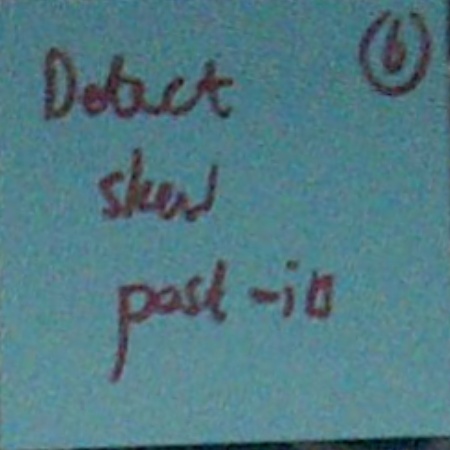 Detect
skew
post-its
6